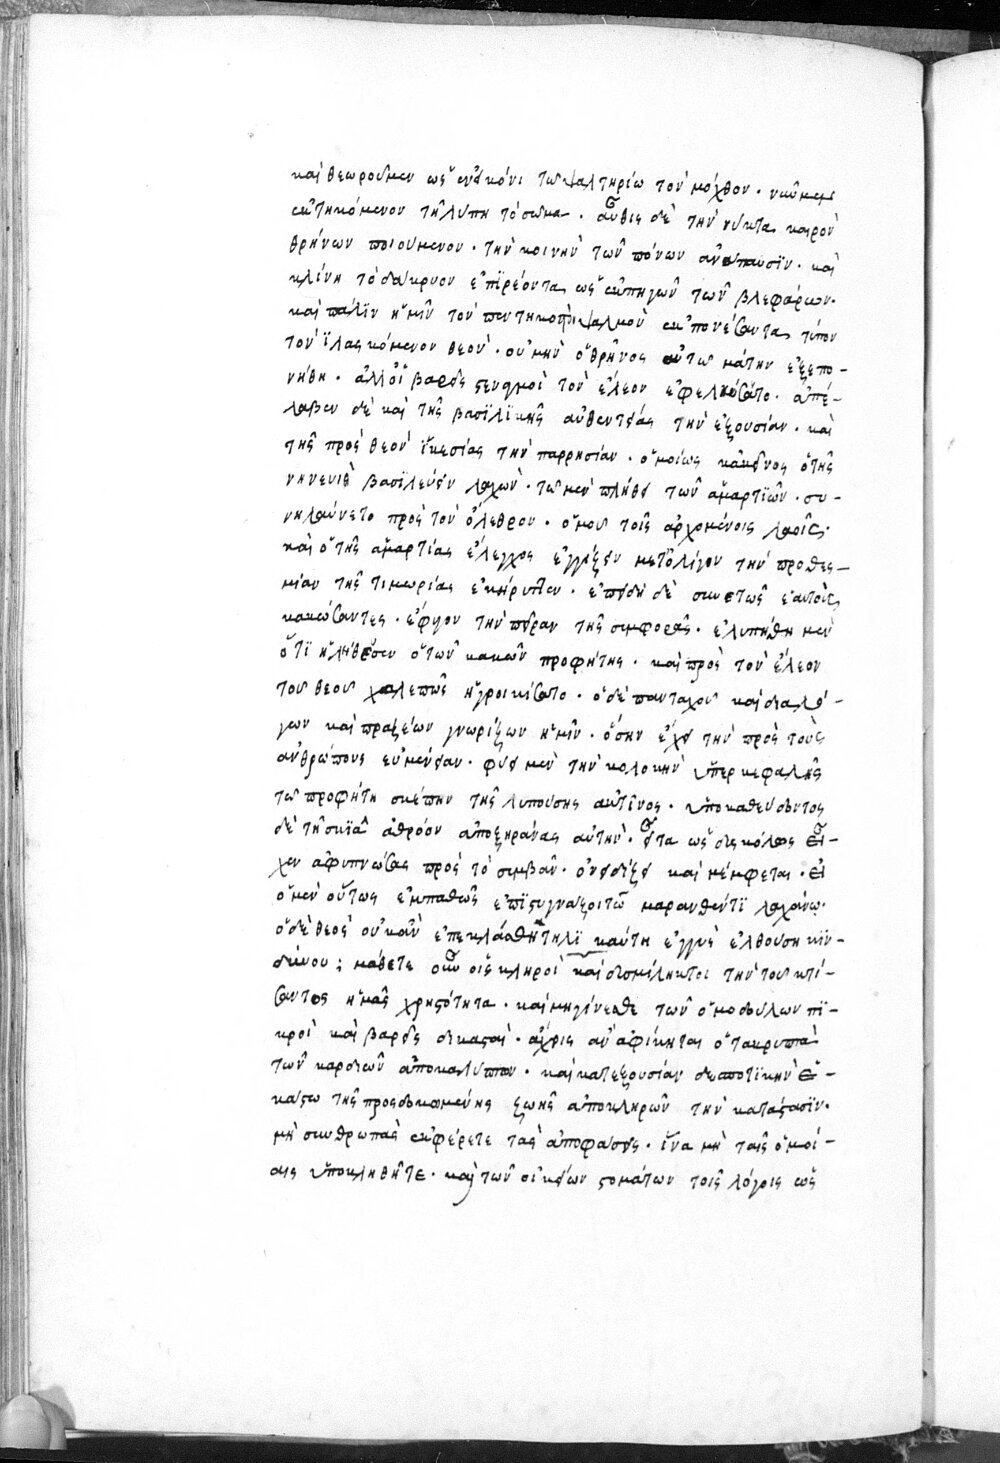 καὶ θεωροῦμεν ὡς ἐν εἰκόνι τῶ ψαλτηρίω τὸν μόχθον·
ἐκτηκόμενον τῆ λύπη τὸ σῶμα· αὖθις δὲ τὴν νύκτα καιρὸν
θρήνων ποιούμενον· τὴν κοινὴν τῶν πόνων ἀνάπαυσϊν· καὶ
κλίνη τὸ δάκρυον ἐπϊρέοντα ὡς ἐκ πηγῶν τῶν βλεφάρων·
καὶ πάλϊν ἡμῖν τὸν πεντηκοστὸν ψαλμὸν ἐκπονέσαντα τύπον
τὸν ϊλασκόμενον θεὸν· οὐ μὴν ὁ θρῆνος οὕτω μάτην ἐξεπο-
νήθη· ἀλλ' οἱ βαρεῖς στεναγμοὶ τὸν ἔλεον ἐφελκύσατο· ἀπέ-
λαβεν δὲ καὶ τῆς βασϊλϊκῆς αὐθεντείας τὴν ἐξουσίαν· καὶ
τῆς πρὸς θεὸν ϊκεσίας τὴν παρρησίαν· ὁμοίως κἀκεῖνος ὁ τῆς
νηνευὶ βασϊλεύειν λαχὼν· τῶ μὲν πλήθει τῶν ἁμαρτϊῶν· συ-
νηλαύνετο πρὸς τὸν ὄλεθρον· ὁμοῦ τοῖς ἀρχομένοις λαοῖς·
καὶ ὁ τῆς ἁμαρτίας ἔλεγχος ἐγγίζειν μετ' ὀλίγον τὴν προθεσ-
μίαν τῆς τιμωρίας ἐκήρυττεν· ἐπειδὴ δὲ συνετῶς ἑαυτοὺς
κακώσαντες· ἔφυγον τὴν πεῖραν τῆς συμφορᾶς· ἐλυπήθη μὲν
ὅτϊ ἠλήθευσεν ὁ τῶν κακῶν προφήτης· καὶ πρὸς τὸν ἔλεον
τοῦ θεοῦ χαλεπῶς ἠγροικίσατο· ὁ δὲ πανταχοῦ καὶ διὰ λό-
γων καὶ πράξεων γνωρίζων ἡμῖν· ὅσην ἔχει τὴν πρὸς τοὺς
ἀνθρώπους εὐμένειαν· φύει μὲν τὴν κολοκὴν ὑπὲρ κεφαλῆς
τῶ προφήτη σκέπην τῆς λυπούσης ἀκτῖνος· ὑποκαθεύδοντος
δὲ τῆ σκϊᾶ ἀθρόον ἀποξηράνας αὐτὴν· εἶτα ὡς δυσκόλως εἶ-
χεν ἀφυπνώσας πρὸς τὸ συμβὰν· ὀνειδίζει καὶ μέμφεται· εἰ
ὁ μὲν οὕτως ἐμπαθῶς ἐπϊστυγνάζοι τῶ μαρανθέντϊ λαχάνω·
ὁ δὲ θεὸς οὐκ ἂν ἐπεκλάσθη τηλϊκαύτη ἐγγὺς ἐλθούση κϊν-
δύνου; μάθετε οὖν οἱ σκληροὶ καὶ δυσμίληκτοι τὴν τοῦ κτί-
σαντος ἡμᾶς χρηστότητα· καὶ μὴ γίνεσθε τῶν ὁμοδούλων πϊ-
κροὶ καὶ βαρεῖς δικασταὶ· ἄχρις ἂν ἀφίκηται ὁ τὰ κρυπτὰ
τῶν καρδιῶν ἀποκαλύπτων· καὶ κατ' ἐξουσίαν δεσποτϊκὴν ἑ-
κάστω τῆς προσδοκωμένης ζωῆς ἀποκληρῶν τὴν κατάστασϊν·
μὴ σκυθρωπὰς ἐκφέρετε τὰς ἀποφάσεις· ἵνα μὴ ταῖς ὁμοί-
αις ὑποκληθῆτε· καὶ τῶν οἰκείων στομάτων τοῖς λόγοις ὡς